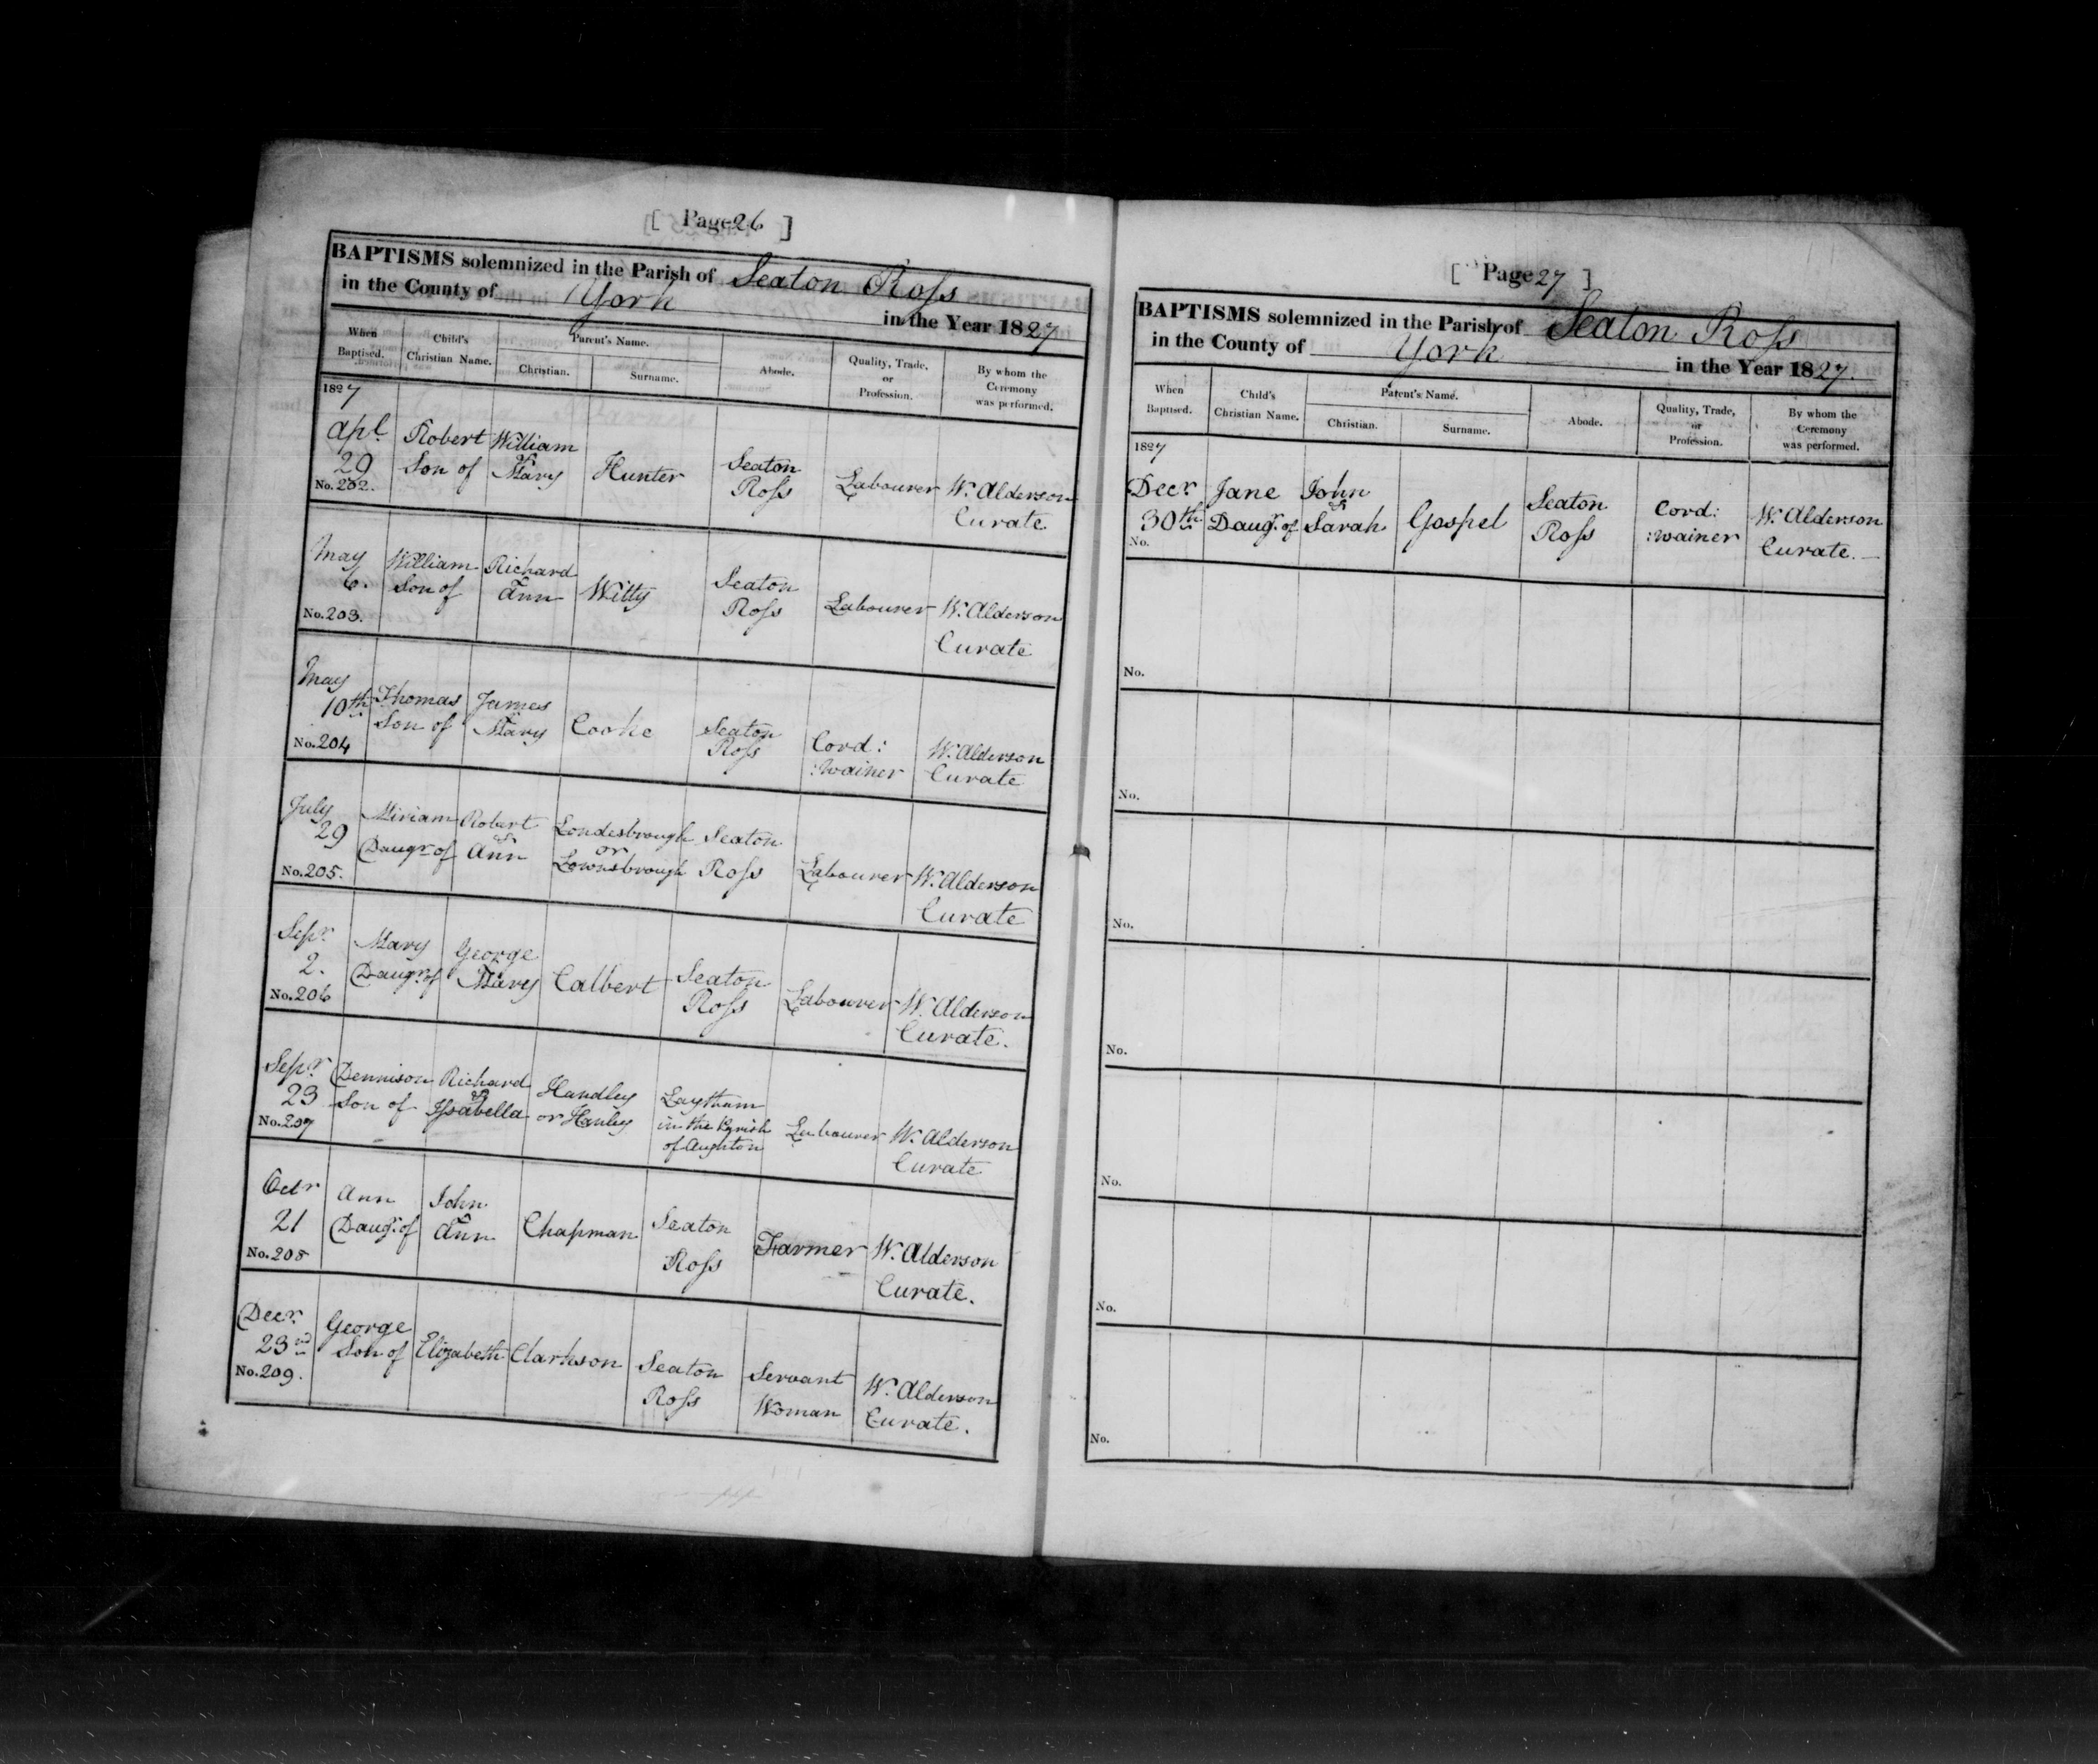 [ Page 26 ]
BAPTISMS solemnized in the Parish of Seaton Ross
in the County of York in the Year 1827
When Baptised. Child's Christian Name. Parent's Name. Christian. Surname. Abode. Quality, Trade, or Profession. By whom the Ceremony was performed.
1827
Apl. 29 No. 202. Robert Son of William & Mary Hunter Seaton Ross Labourer W. Alderson Curate
May 6. No. 203. William Son of Richard & Ann Witty Seaton Ross Labourer W. Alderson Curate
May 10th No. 204 Thomas Son of James & Mary Cooke Seaton Ross Cord: :wainer W. Alderson Curate
July 29 No. 205. Miriam Daugr. of Robert & Ann Londesbrough or Lownsbrough Seaton Ross Labourer W. Alderson Curate
Sepr. 2. No. 206 Mary Daugr. of George & Mary Calbert Seaton Ross Labourer W. Alderson Curate.
Sepr. 23 No. 207 Dennison Son of Richard & Isabella Handley or Hanley Laytham in the Parish of Aughton Labourer W. Alderson Curate
Octr 21 No. 208 Ann Daugr. of John & Ann Chapman Seaton Ross Farmer W. Alderson Curate.
Decr. 23rd No. 209. George Son of Elizabeth Clarkson Seaton Ross Servant Woman W. Alderson Curate.
[ Page 27 ]
BAPTISMS solemnized in the Parish of Seaton Ross
in the County of York in the Year 1827.
When Baptised. Child's Christian Name. Parent's Name. Christian. Surname. Abode. Quality, Trade, or Profession. By whom the Ceremony was performed.
1827
Decr. 30th No. Jane Daugr. of John & Sarah Gospel Seaton Ross Cord: :wainer W. Alderson Curate.
No.
No.
No.
No.
No.
No.
No.